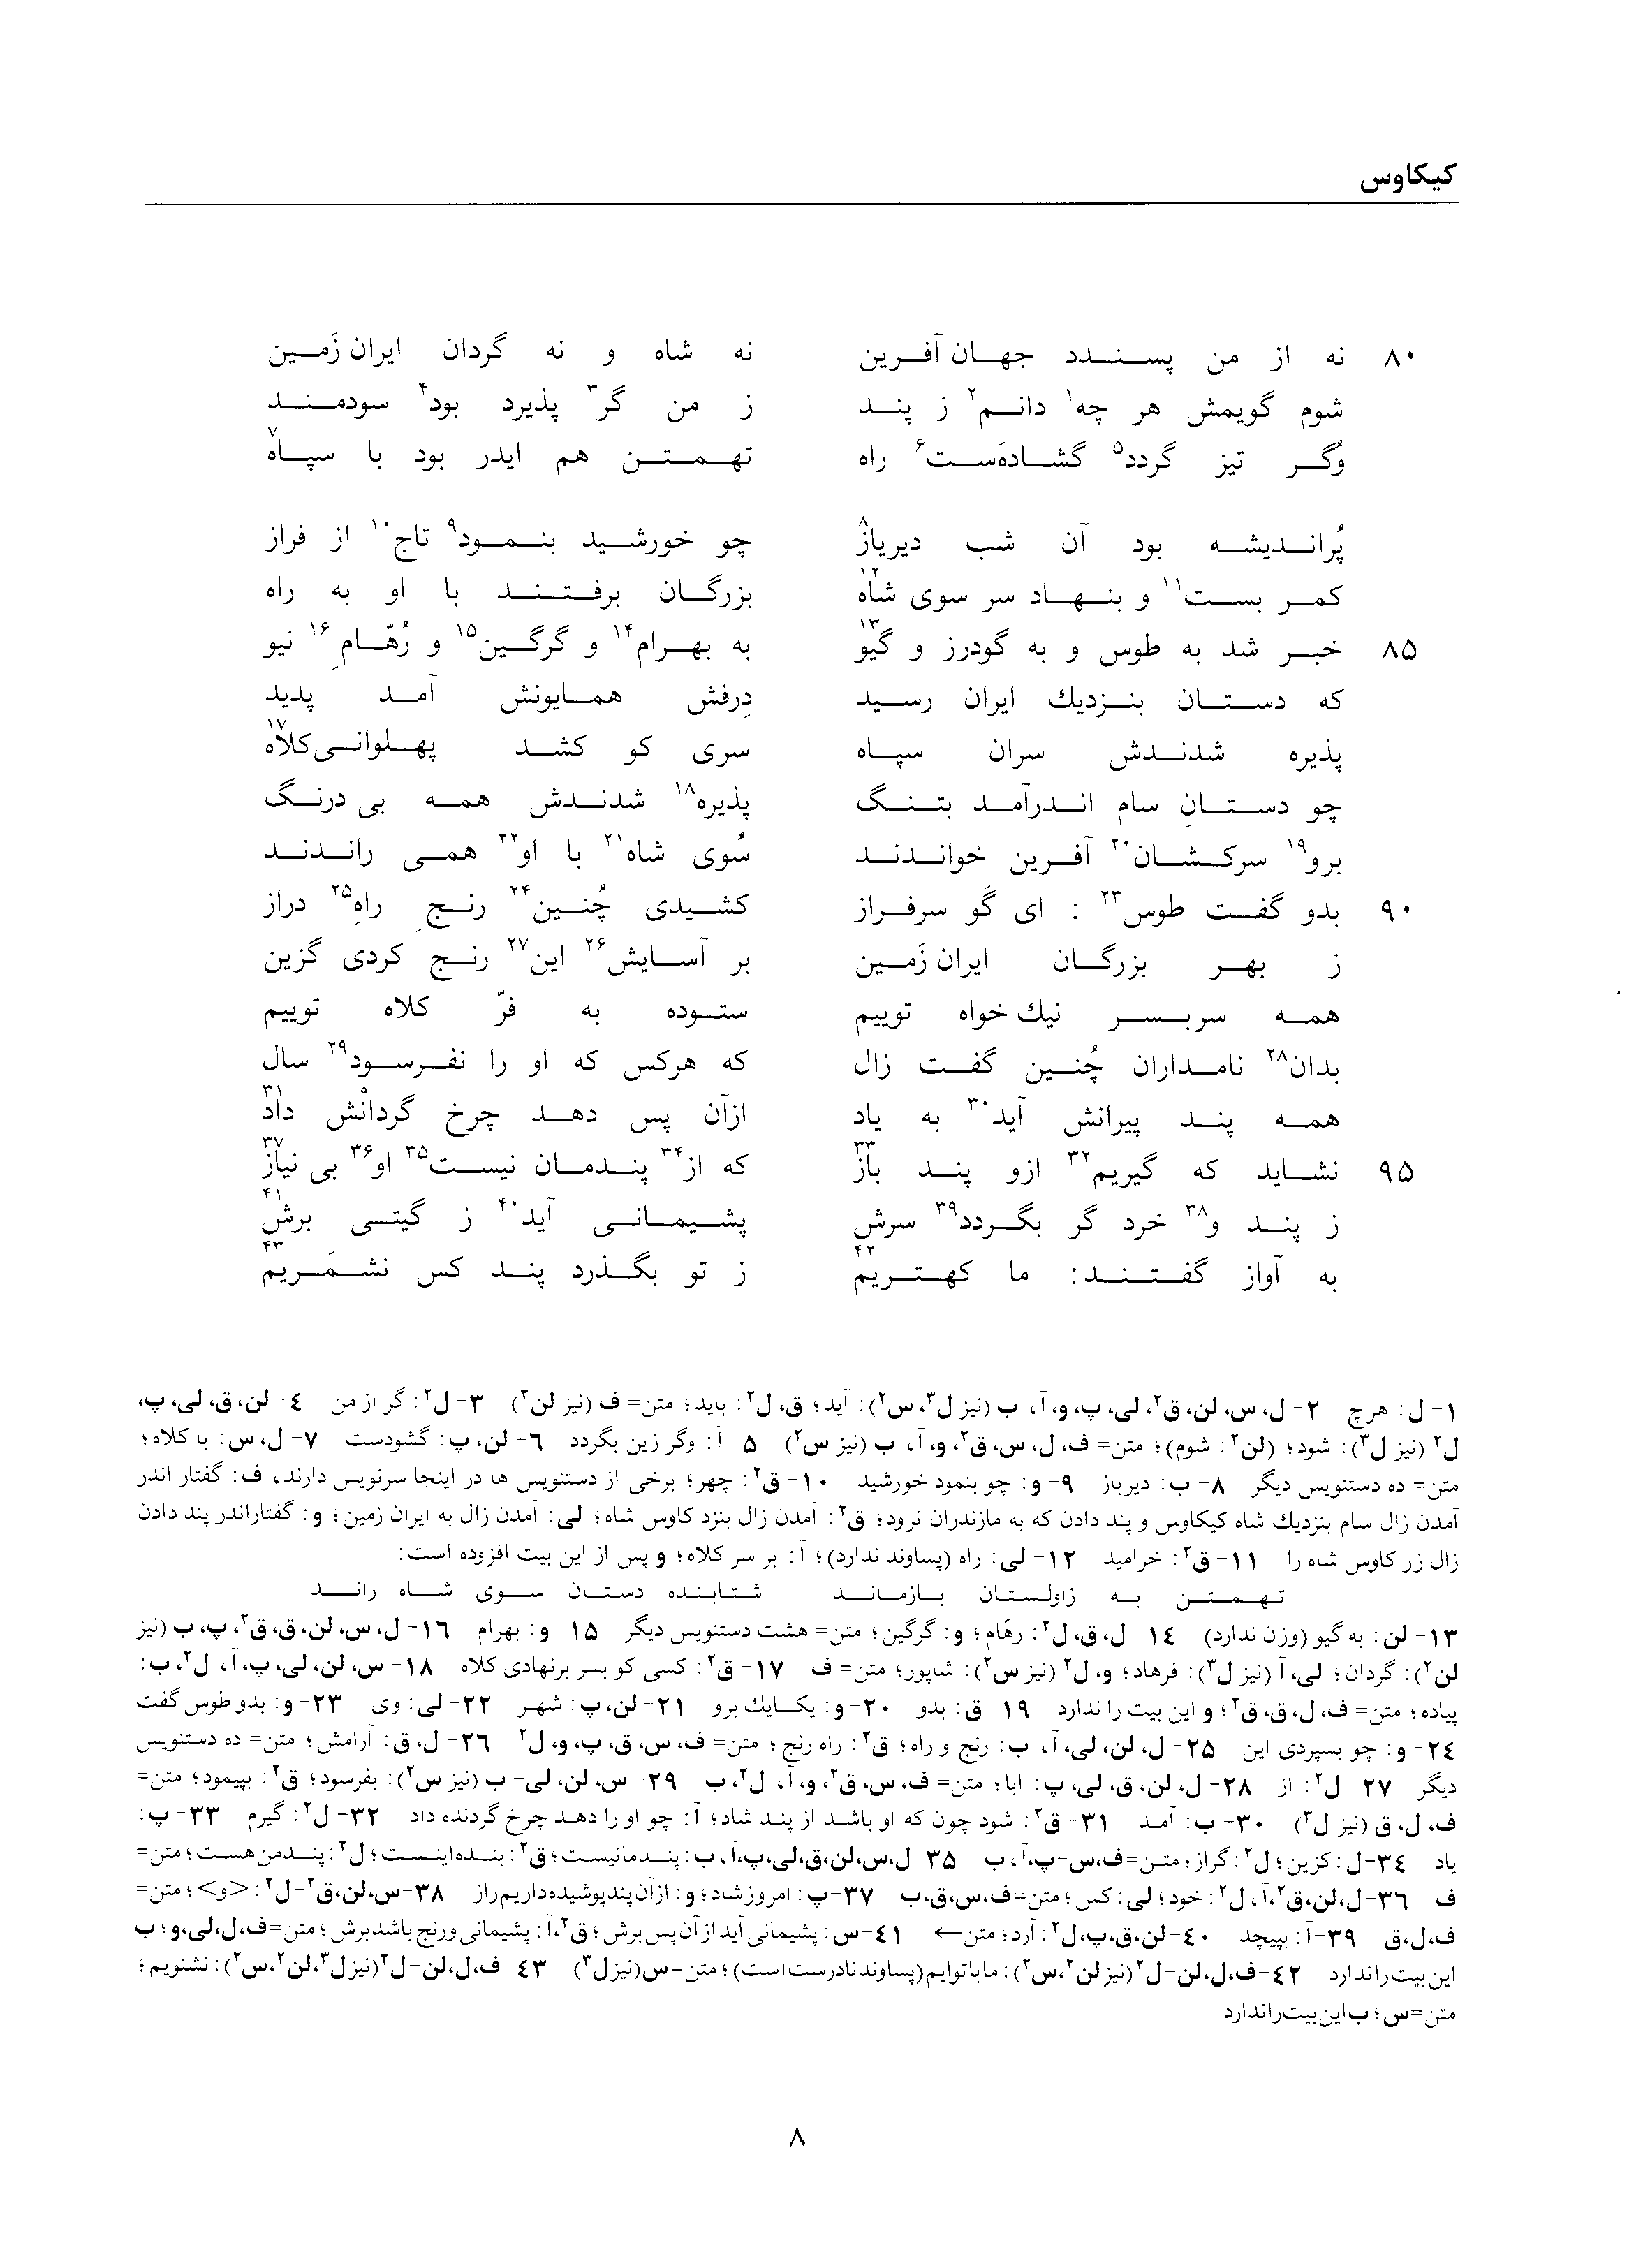 کیکاوس
۸۰ نه از من پسندد جهان آفرین نه شاه و نه گردان ایران زَمین
شوم گویمش هر چه۱ دانم۲ ز پند ز من گر۳ پذیرد بود۴ سودمند
وُگر تیز گردد۵ گشاده‌َست۶ راه تهمتن هم ایدر بود با سپاه۷
پُراندیشه بود آن شب دیریاز۸ چو خورشید بنمود۹ تاج۱۰ از فراز
کمر بست۱۱ و بنهاد سر سوی شاه۱۲ بزرگان برفتند با او به راه
۸۵ خبر شد به طوس و به گودرز و گیو۱۳ به بهرام۱۴ و گرگین۱۵ و رُهّامِ۱۶ نیو
که دستان بنزدیك ایران رسید دِرفش همایونش آمد پدید
پذیره شدندش سران سپاه سری کو کشد پهلوانی‌کلاه۱۷
چو دستانِ سام اندرآمد بتنگ پذیره۱۸ شدندش همه بی درنگ
برو۱۹ سرکشان۲۰ آفرین خواندند سُوی شاه۲۱ با او۲۲ همی راندند
۹۰ بدو گفت طوس۲۳ : ای گَو سرفراز کشیدی چُنین۲۴ رنجِ راهِ۲۵ دراز
ز بهر بزرگان ایران زَمین بر آسایش۲۶ این۲۷ رنج کردی گزین
همه سربسر نیك خواه توییم ستوده به فرّ کلاه توییم
بدان۲۸ نامداران چُنین گفت زال که هرکس که او را نفرسود۲۹ سال
همه پند پیرانش آید۳۰ به یاد ازآن پس دهد چرخ گردانْش داد۳۱
۹۵ نشاید که گیریم۳۲ ازو پند باز۳۳ که از۳۴ پندمان نیست۳۵ او۳۶ بی نیاز۳۷
ز پند و۳۸ خرد گر بگردد۳۹ سرش پشیمانی آید۴۰ ز گیتی برش۴۱
به آواز گفتند: ما کهتریم۴۲ ز تو بگذرد پند کس نشمَریم۴۳
۱- ل: هرچ ۲- ل، س، لن، ق۲، لی، پ، و، آ، ب (نیز ل۳، س۲): آید؛ ق، ل۲: باید؛ متن= ف (نیز لن۲) ۳- ل۲: گر از من ۴- لن، ق، لی، پ،
ل۲ (نیز ل۳): شود؛ (لن۲: شوم)؛ متن= ف، ل، س، ق۲، و، آ، ب (نیز س۲) ۵- آ: وگر زین بگردد ۶- لن، پ: گشودست ۷- ل، س: با کلاه؛
متن= ده دستنویس دیگر ۸- ب: دیرباز ۹- و: چو بنمود خورشید ۱۰- ق۲: چهر؛ برخی از دستنویس ها در اینجا سرنویس دارند، ف: گفتار اندر
آمدن زال سام بنزدیك شاه کیکاوس و پند دادن که به مازندران نرود؛ ق۲: آمدن زال بنزد کاوس شاه؛ لی: آمدن زال به ایران زمین؛ و: گفتاراندر پند دادن
زال زر کاوس شاه را ۱۱- ق۲: خرامید ۱۲- لی: راه (پساوند ندارد)؛ آ: بر سر کلاه؛ و پس از این بیت افزوده است:
تهمتن به زاولستان بازماند شتابنده دستان سوی شاه راند
۱۳- لن: به گیو (وزن ندارد) ۱۴- ل، ق، ل۲: رهّام؛ و: گرگین؛ متن= هشت دستنویس دیگر ۱۵- و: بهرام ۱۶- ل، س، لن، ق، ق۲، پ، ب (نیز
لن۲): گردان؛ لی، آ (نیز ل۳): فرهاد؛ و، ل۲ (نیز س۲): شاپور؛ متن= ف ۱۷- ق۲: کسی کو بسر برنهادی کلاه ۱۸- س، لن، لی، پ، آ، ل۲، ب:
پیاده؛ متن= ف، ل، ق، ق۲؛ و این بیت را ندارد ۱۹- ق: بدو ۲۰- و: یکایك برو ۲۱- لن، پ: شهر ۲۲- لی: وی ۲۳- و: بدو طوس گفت
۲۴- و: چو بسپردی این ۲۵- ل، لن، لی، آ، ب: رنج و راه؛ ق۲: راه رنج؛ متن= ف، س، ق، پ، و، ل۲ ۲۶- ل، ق: آرامش؛ متن= ده دستنویس
دیگر ۲۷- ل۲: از ۲۸- ل، لن، ق، لی، پ: ابا؛ متن= ف، س، ق۲، و، آ، ل۲، ب ۲۹- س، لن، لی- ب (نیز س۲): بفرسود؛ ق۲: بپیمود؛ متن=
ف، ل، ق (نیز ل۳) ۳۰- ب: آمد ۳۱- ق۲: شود چون که او باشد از پند شاد؛ آ: چو او را دهد چرخ گردنده داد ۳۲- ل۲: گیرم ۳۳- پ:
یاد ۳۴- ل: کزین؛ ل۲: گراز؛ متن=ف، س-پ، آ، ب ۳۵- ل، س، لن، ق، لی، پ، آ، ب: پندمانیست؛ ق۲: بنده‌اینست؛ ل۲: پندمن‌هست؛ متن=
ف ۳۶- ل، لن، ق۲، آ، ل۲: خود؛ لی: کس؛ متن=ف، س، ق، ب ۳۷- پ: امروز شاد؛ و: ازآن‌پند‌پوشیده‌داریم‌راز ۳۸- س، لن، ق۲-ل۲: <و>؛ متن=
ف، ل، ق ۳۹- آ: بپیچد ۴۰- لن، ق، پ، ل۲: آرد؛ متن← ۴۱- س: پشیمانی آید از آن پس برش؛ ق۲، آ: پشیمانی و رنج باشد برش؛ متن=ف، ل، لی، و؛ ب
این بیت را ندارد ۴۲- ف، ل، لن-ل۲ (نیز لن۲، س۲): ما با توایم (پساوند نادرست است)؛ متن=س (نیز ل۳) ۴۳- ف، ل، لن-ل۲ (نیز ل۳، لن۲، س۲): نشنویم؛
متن=س؛ ب این بیت را ندارد
۸